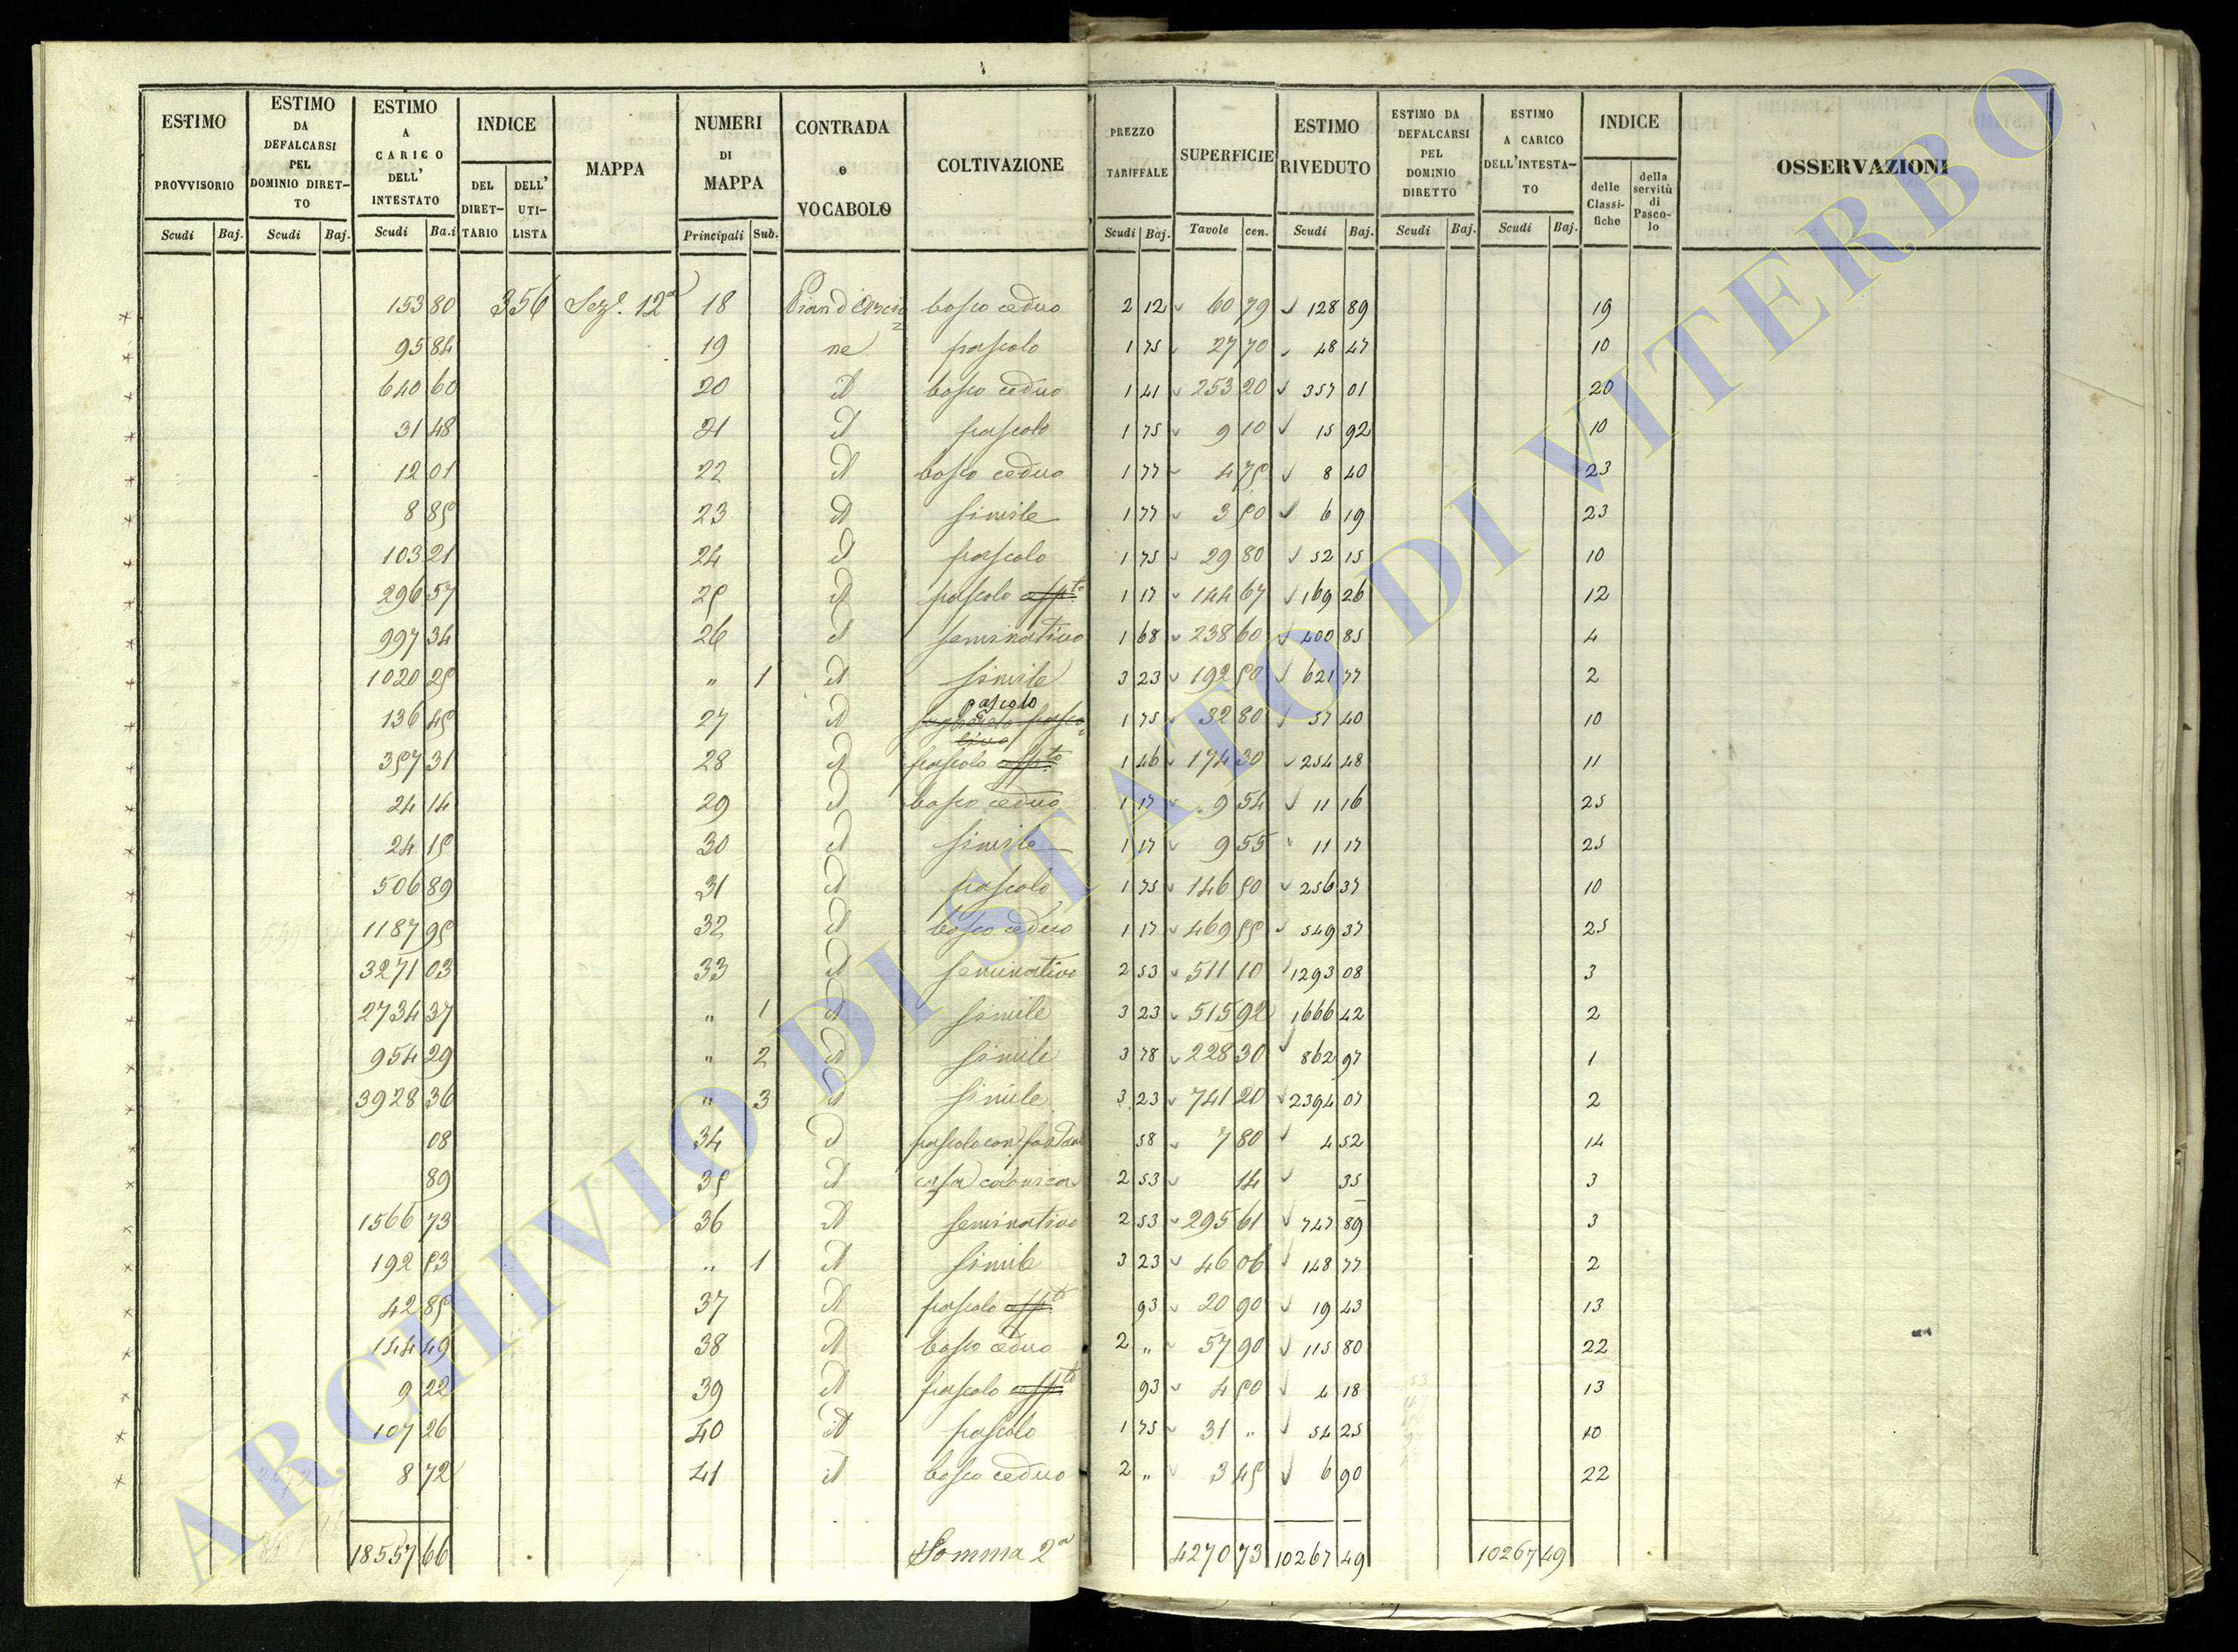 ESTIMO PROVVISORIO | ESTIMO DA DEFALCARSI PEL DOMINIO DIRETTO | ESTIMO A CARICO DELL' INTESTATO | INDICE | MAPPA | NUMERI DI MAPPA | CONTRADA o VOCABOLO | COLTIVAZIONE | PREZZO TARIFFALE | SUPERFICIE | ESTIMO RIVEDUTO | ESTIMO DA DEFALCARSI PEL DOMINIO DIRETTO | ESTIMO A CARICO DELL'INTESTATO | INDICE | OSSERVAZIONI
DEL DIRETTARIO | DELL' UTILISTA | delle Classifiche | della servitù di Pascolo
Scudi | Baj. | Scudi | Baj. | Scudi | Ba.i | Principali | Sub. | Scudi | Baj. | Tavole | cen. | Scudi | Baj. | Scudi | Baj. | Scudi | Baj.
153 80 | 356 | Sez.e 12a | 18 | Pian d'Arcio= | bosco ceduo | 2 12 | 60 79 | 128 89 | 19
95 84 | 19 | ne | pascolo | 1 75 | 27 70 | 48 47 | 10
640 60 | 20 | id | bosco ceduo | 1 41 | 253 20 | 357 01 | 20
31 48 | 21 | id | pascolo | 1 75 | 9 10 | 15 92 | 10
12 01 | 22 | id | bosco ceduo | 1 77 | 4 75 | 8 40 | 23
8 85 | 23 | id | simile | 1 77 | 3 50 | 6 19 | 23
103 21 | 24 | id | pascolo | 1 75 | 29 80 | 52 15 | 10
296 57 | 25 | id | pascolo app.to | 1 17 | 144 67 | 169 26 | 12
997 34 | 26 | id | seminativo | 1 68 | 238 60 | 400 85 | 4
1020 25 | " | 1 | id | simile | 3 23 | 192 50 | 621 77 | 2
136 45 | 27 | id | pascolo | 1 75 | 32 80 | 57 40 | 10
357 31 | 28 | id | pascolo app.to | 1 46 | 174 30 | 254 48 | 11
24 14 | 29 | id | bosco ceduo | 1 17 | 9 54 | 11 16 | 25
24 15 | 30 | id | simile | 1 17 | 9 55 | 11 17 | 25
506 89 | 31 | id | pascolo | 1 75 | 146 50 | 256 37 | 10
1187 95 | 32 | id | bosco ceduo | 1 17 | 469 55 | 549 37 | 25
3271 03 | 33 | id | seminativo | 2 53 | 511 10 | 1293 08 | 3
2734 37 | " | 1 | id | simile | 3 23 | 515 92 | 1666 42 | 2
954 29 | " | 2 | id | simile | 3 78 | 228 30 | 862 97 | 1
3928 36 | " | 3 | id | simile | 3 23 | 741 20 | 2394 07 | 2
08 | 34 | id | pascolo con | 58 | 7 80 | 4 52 | 14
89 | 35 | id | casa colonica | 2 53 | 14 | 35 | 3
1566 73 | 36 | id | seminativo | 2 53 | 295 61 | 747 89 | 3
192 53 | " | 1 | id | simile | 3 23 | 46 06 | 148 77 | 2
42 85 | 37 | id | pascolo app.to | 93 | 20 90 | 19 43 | 13
144 49 | 38 | id | bosco ceduo | 2 " | 57 90 | 115 80 | 22
9 22 | 39 | id | pascolo app.to | 93 | 4 50 | 4 18 | 13
107 26 | 40 | id | pascolo | 1 75 | 31 " | 54 25 | 10
8 72 | 41 | id | bosco ceduo | 2 " | 3 45 | 6 90 | 22
18557 66 | Somma 2a | 4270 73 | 10267 49 | 10267 49
ARCHIVIO DI STATO DI VITERBO